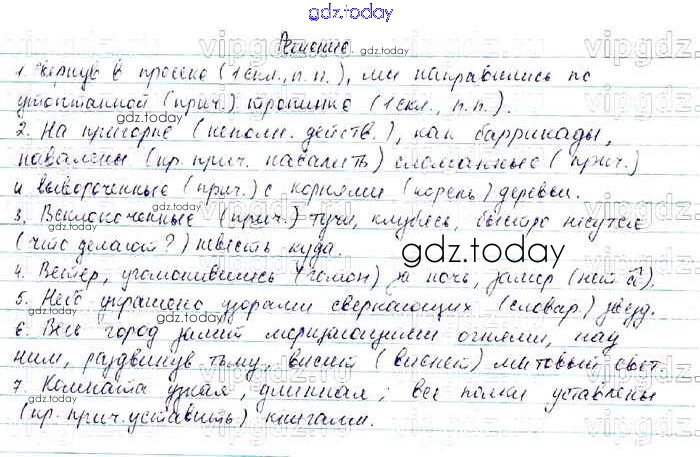 gdz.today
Решение.
1. Свернув в просеко (1 скл., п.п.), мы направились по
утоптанной (прич.) тропинке (1 скл., п.п.).
2. На пригорке (неполн. действ.), как баррикады,
навалены (кр. прич. навалить) сломанные (прич.)
и вывороченные (прич.) с корнями (корень) деревья.
3. Всклокоченные (прич.) тучи, клубясь, быстро несутся
(что делают?) невесть куда.
gdz.today
4. Ветер, угомонившись (гомон) за ночь, замер (нет а).
5. Небо украшено узорами сверкающих (словар.) звезд.
6. Весь город залит мерцающими огнями, над
ним, раздвинув тьму, висит (виснет) матовый свет.
7. Комната узкая, длинная; все полки уставлены
(кр. прич. уставить) книгами.